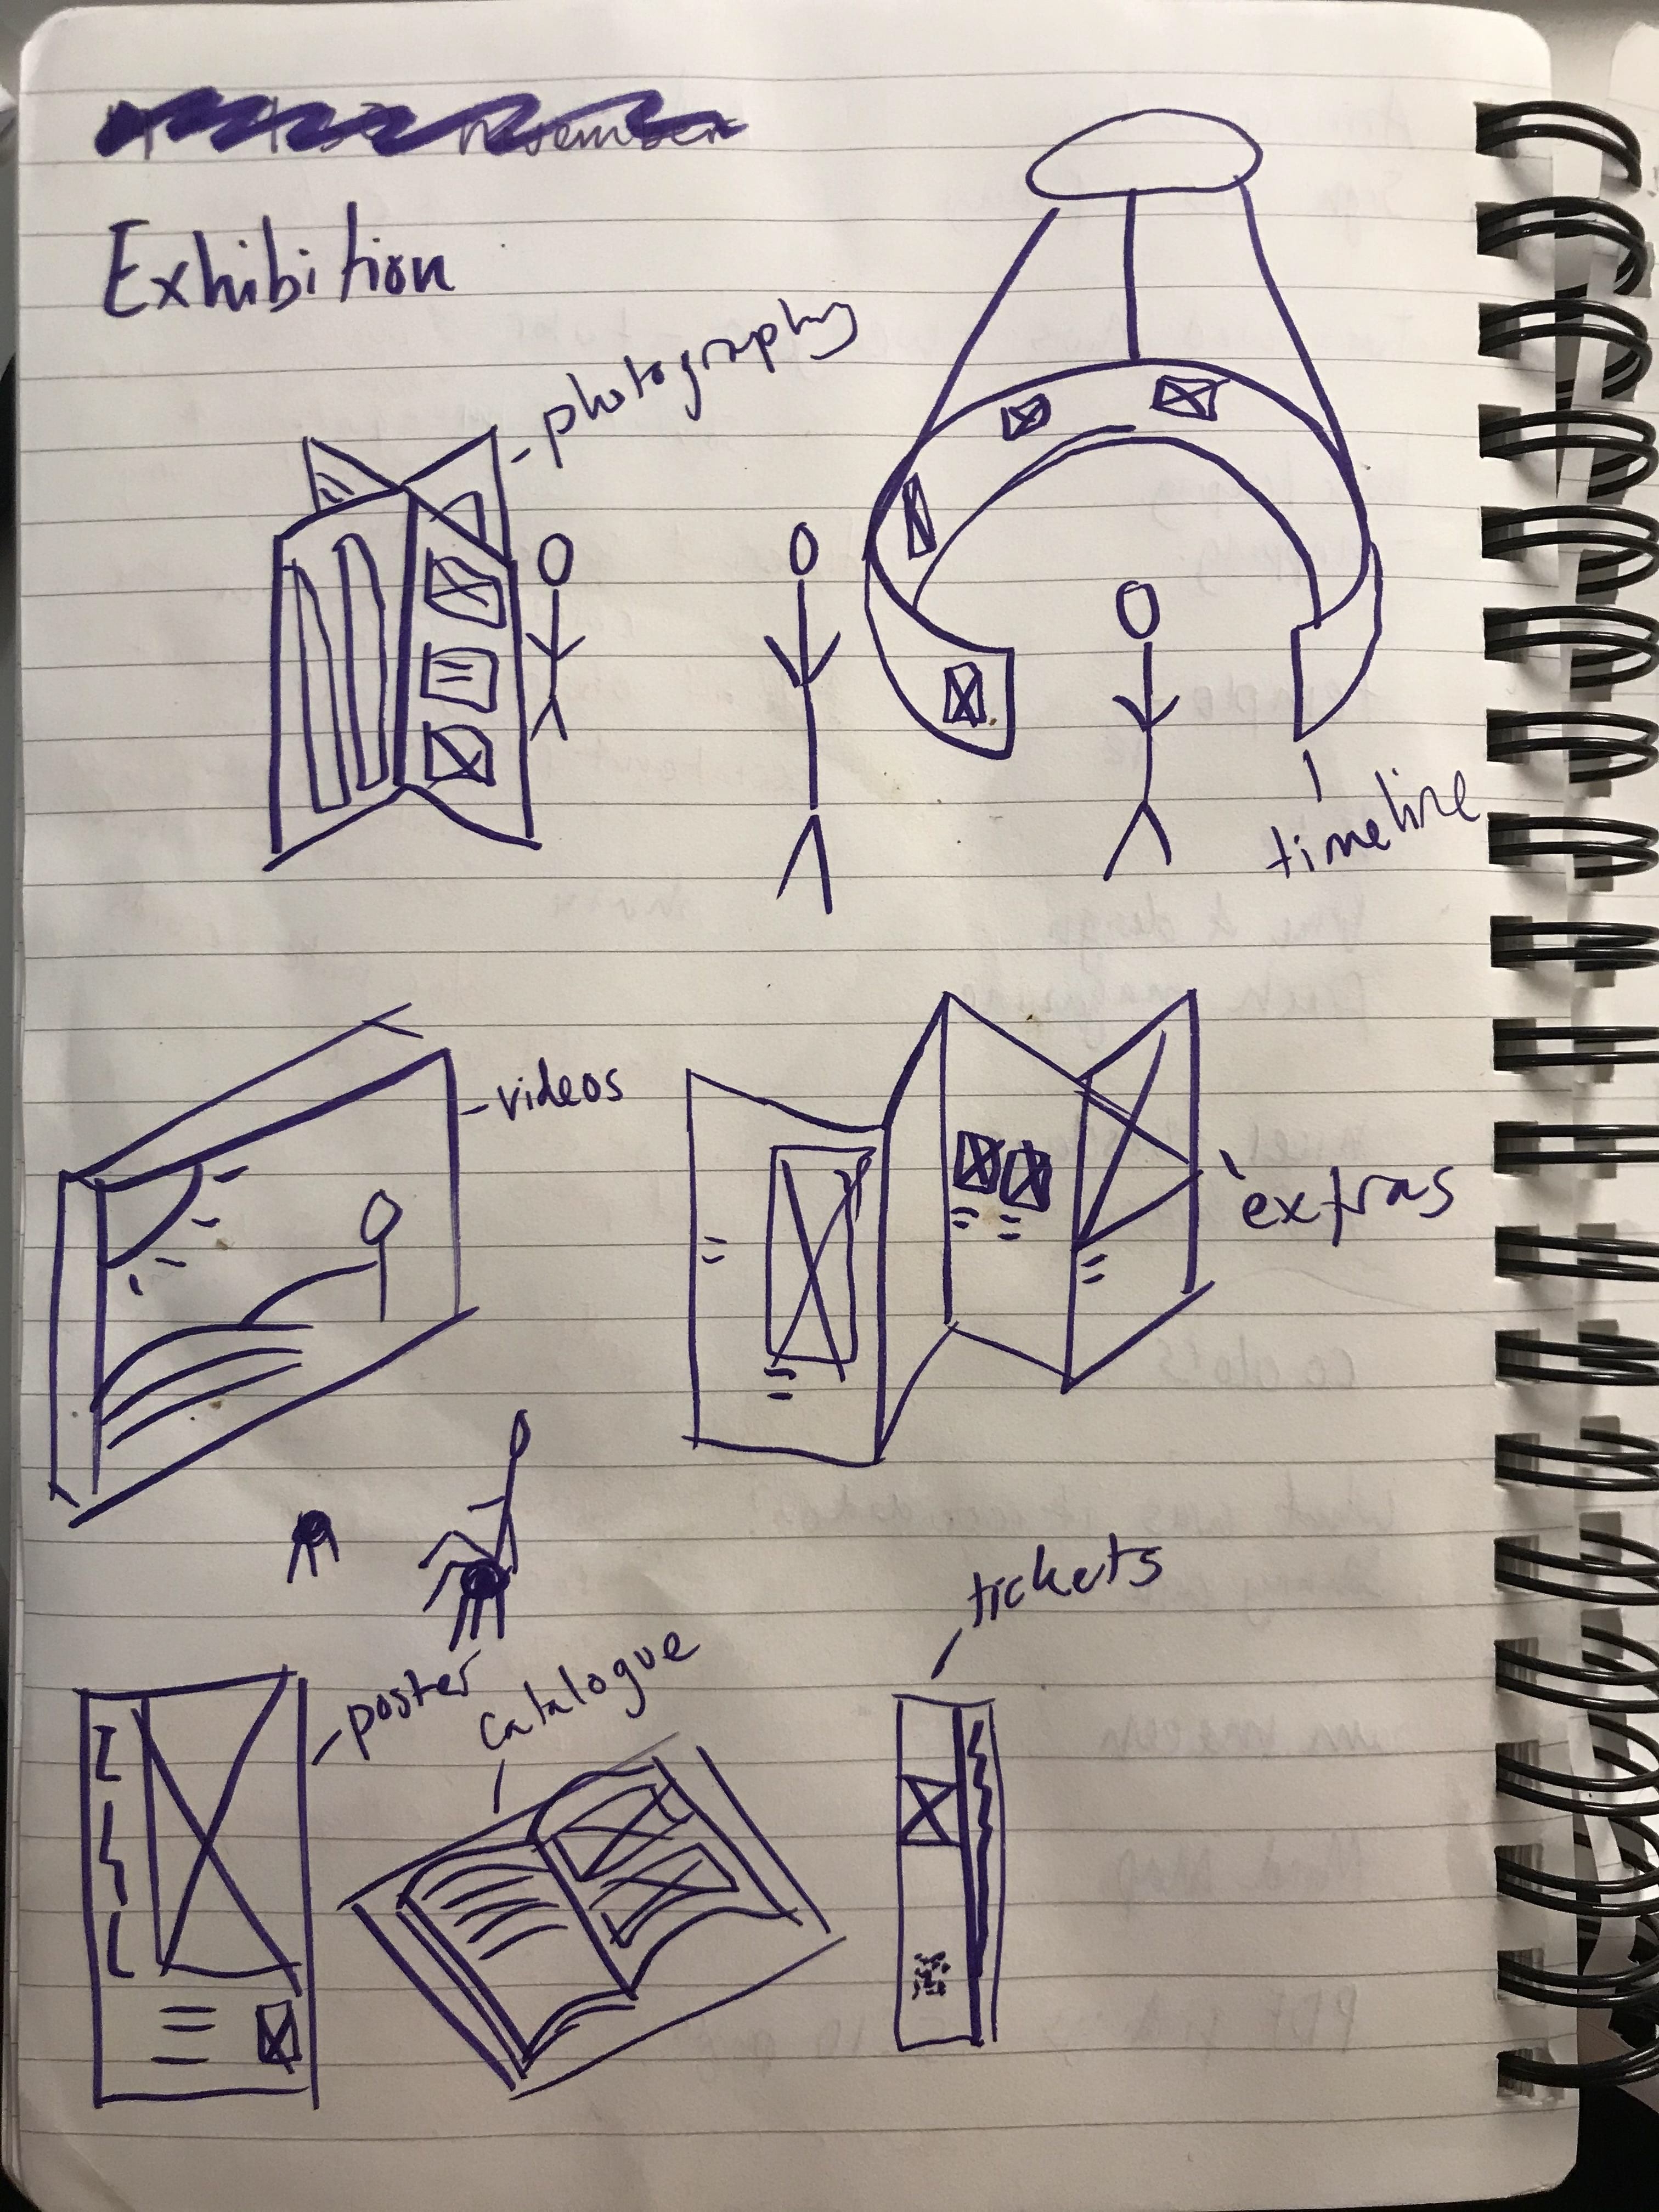 November
Exhibition
-photography
timeline
-videos
extras
tickets
-poster
catalogue